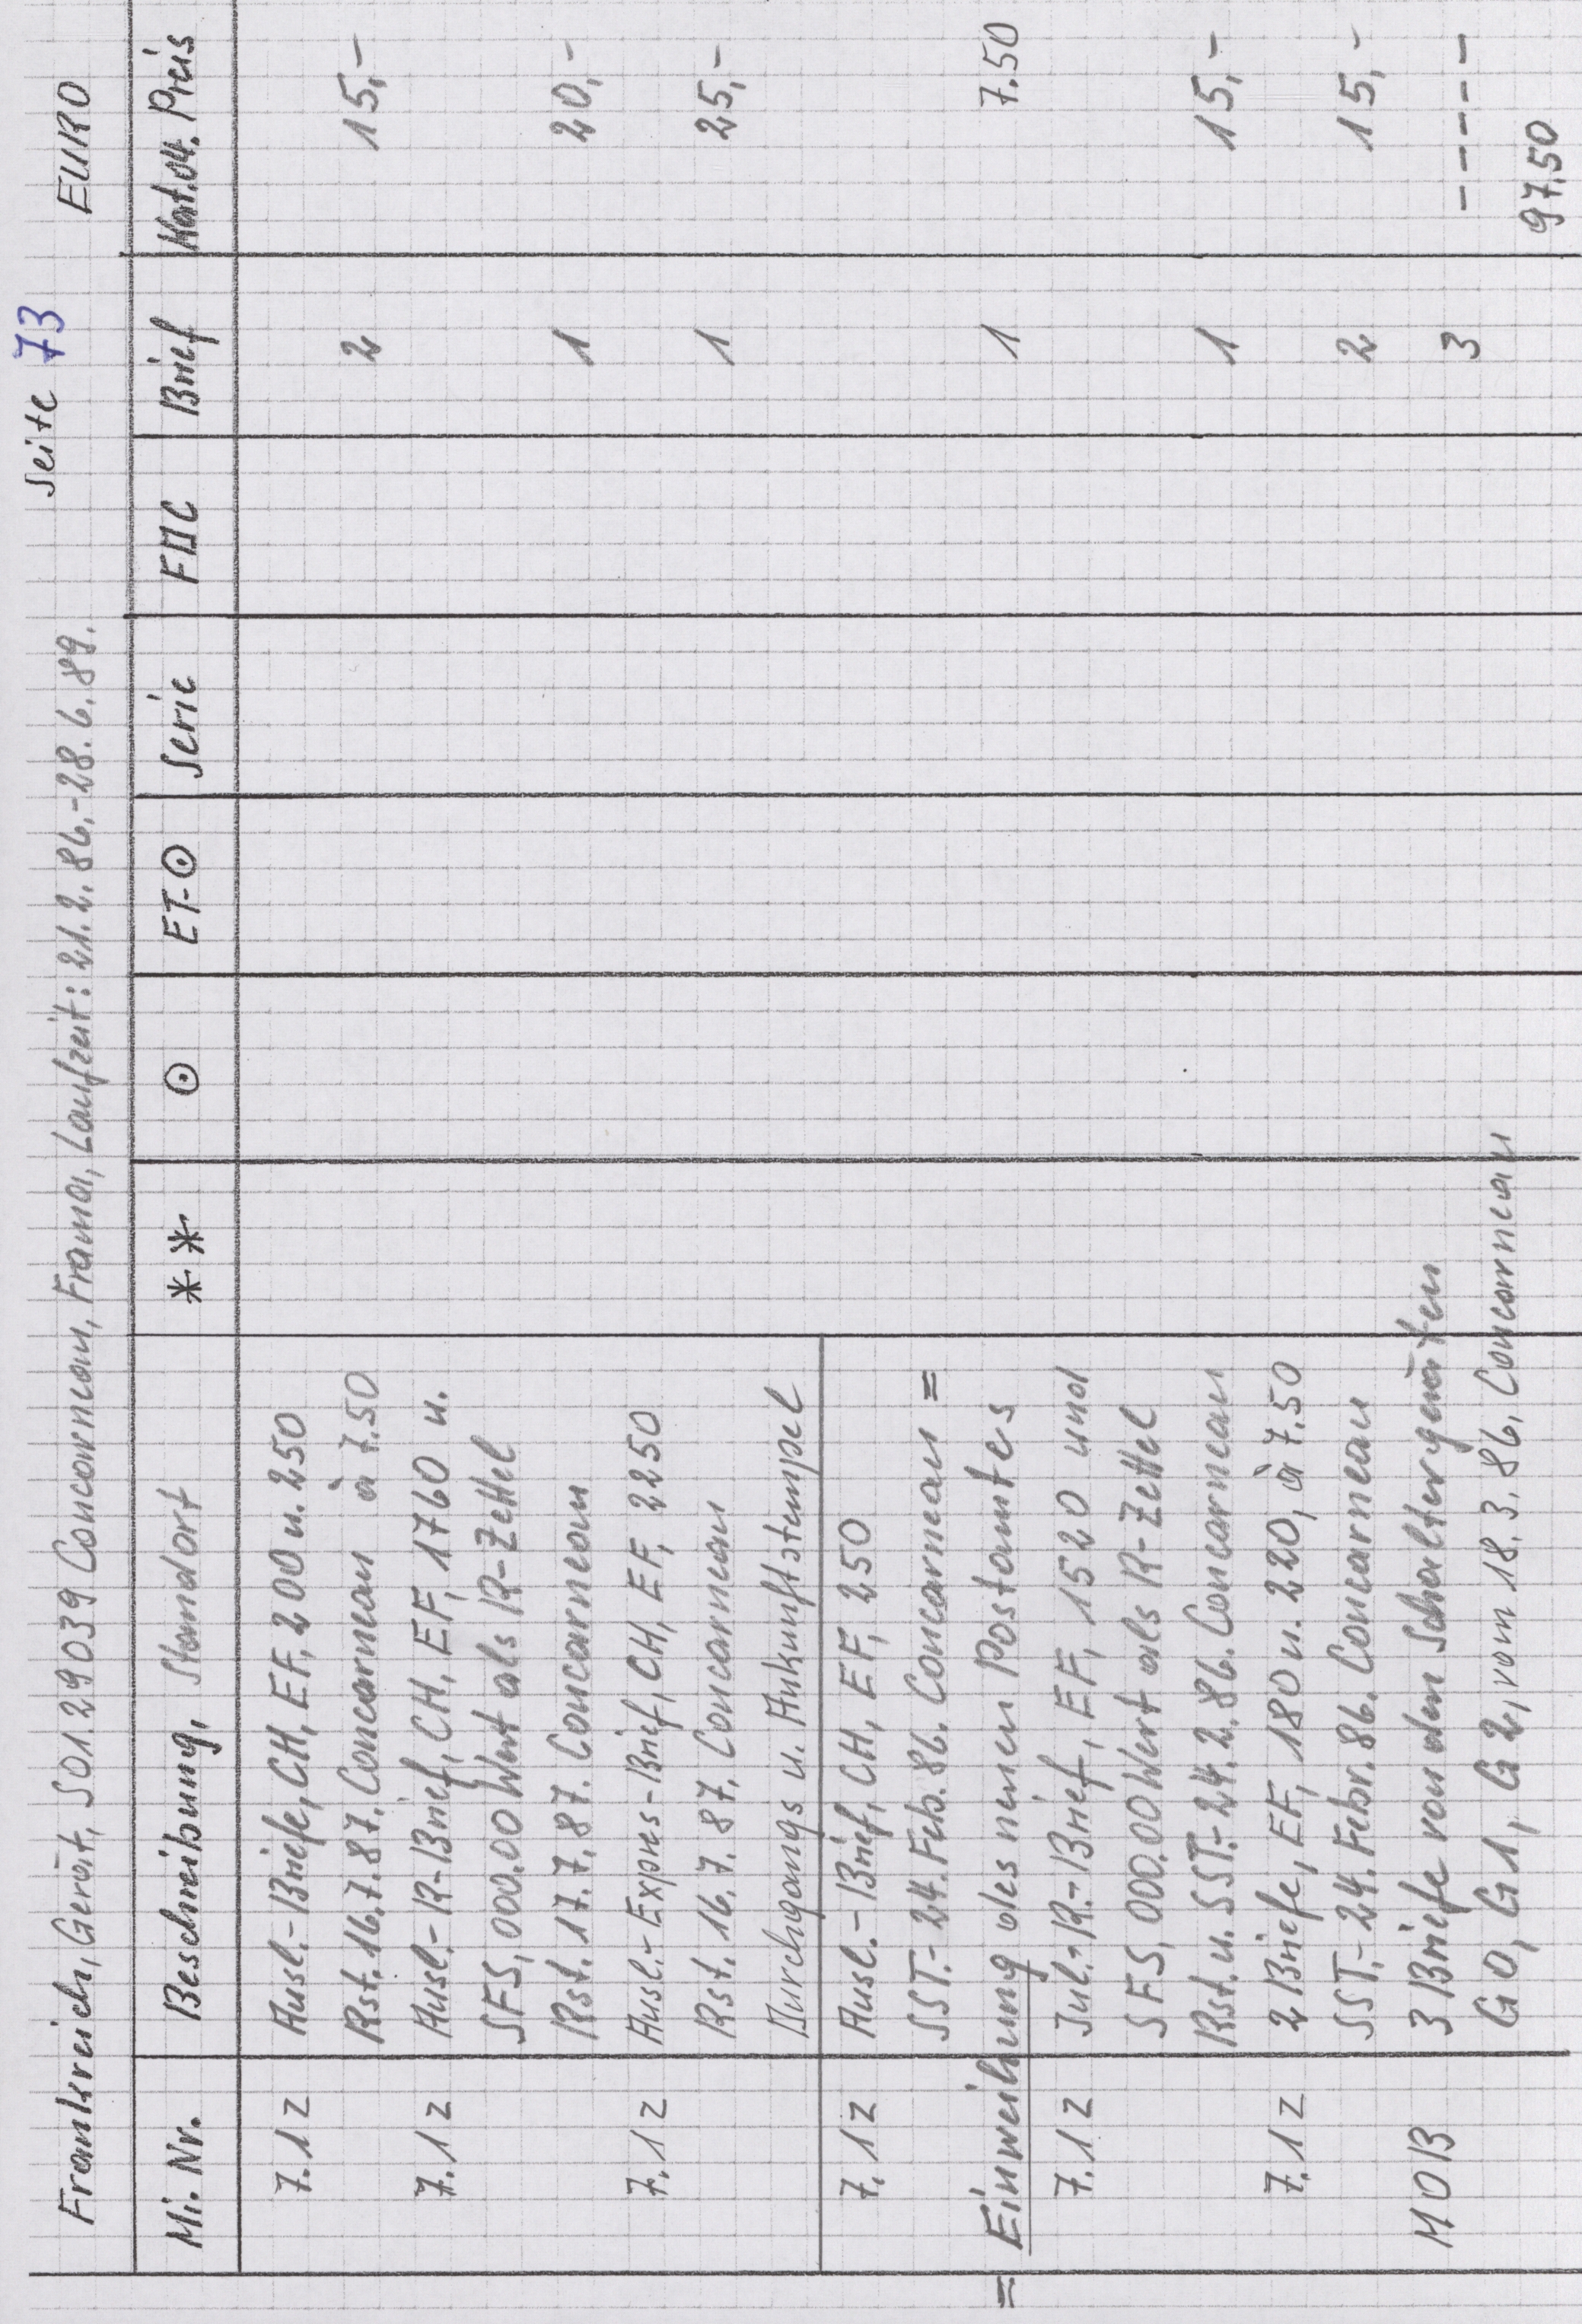 Seite 73
Frankreich, Gerät, S01.29039 Concarneau, Frama, Laufzeit: 21.2.86.-28.6.89. EURO
Mi. Nr. Beschreibung, Standort ** ⊙ ET-⊙ Serie FDC Brief Kat.04. Preis
7.1 Z Ausl.-Briefe, CH, EF, 200 u. 250
Rst. 16.7.87. Concarneau à 7.50 2 15,-
7.1 Z Ausl.-R-Brief, CH, EF, 1760 u.
SFS, 000.00 Wert als R-Zettel
Rst. 17.7.87. Concarneau 1 20,-
7.1 Z Ausl.-Expres-Brief, CH, EF, 2250
Rst. 16.7.87. Concarneau 1 25,-
Durchgangs u. Ankunftstempel
7.1 Z Ausl.-Brief, CH, EF, 250
SST.-24.Feb.86. Concarneau =
= Einweihung des neuen Postamtes 1 7.50
7.1 Z Inl.-R.-Brief, EF, 1520 und
SFS, 000.00 Wert als R-Zettel
Rst. u. SST.-24.2.86. Concarneau 1 15,-
7.1 Z 2 Briefe, EF, 180 u. 220, à 7.50
SST.-24.Febr.86. Concarneau 2 15,-
MOB 3 Briefe von den Schaltergeräten 3 -----
G0, G1, G2, vom 18.3.86. Concarneau
97.50